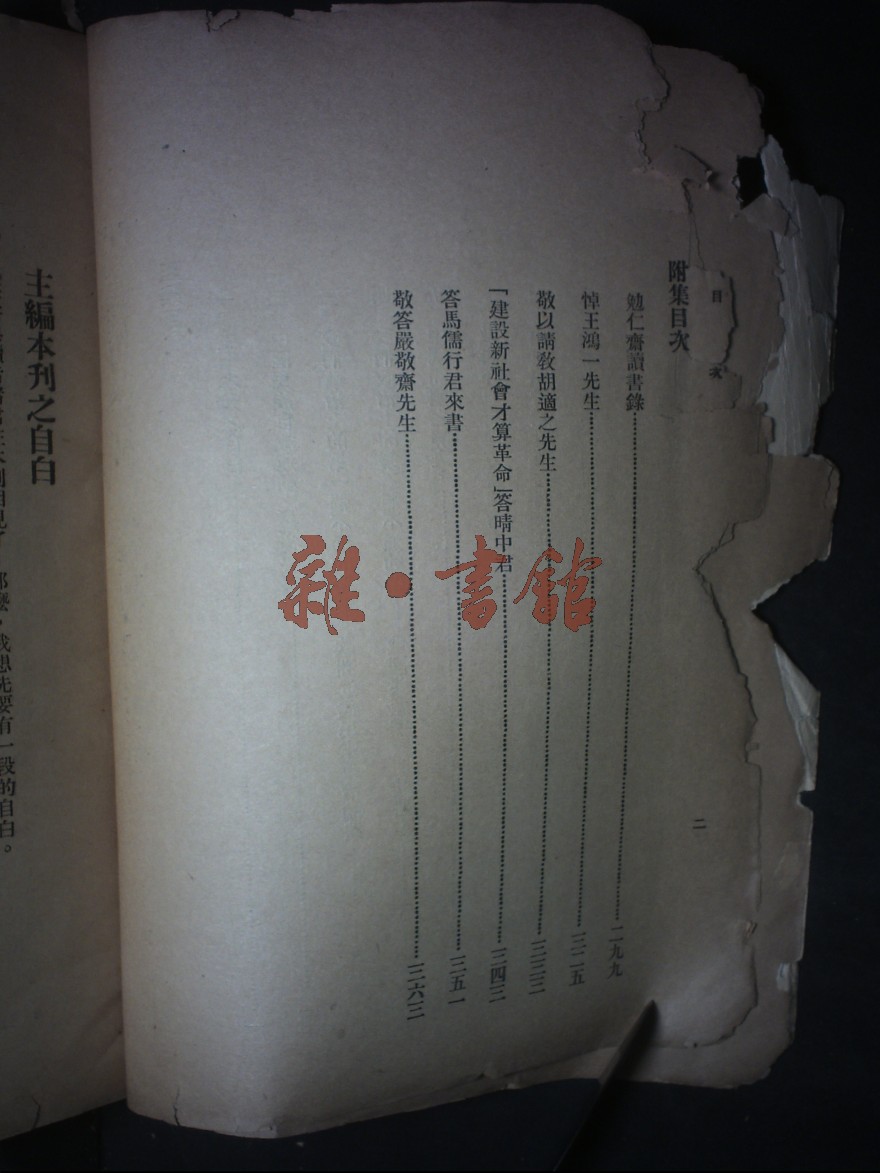 目次
二
附集目次
勉仁齋讀書錄……二九九
悼王鴻一先生……三二五
敬以請教胡適之先生……三三三
「建設新社會才算革命」答晴中君……三四三
答馬儒行君來書……三五一
敬答嚴敬齋先生……三六三
雜·書館
主編本刊之自白
那麼，我想先要有一段的自白。